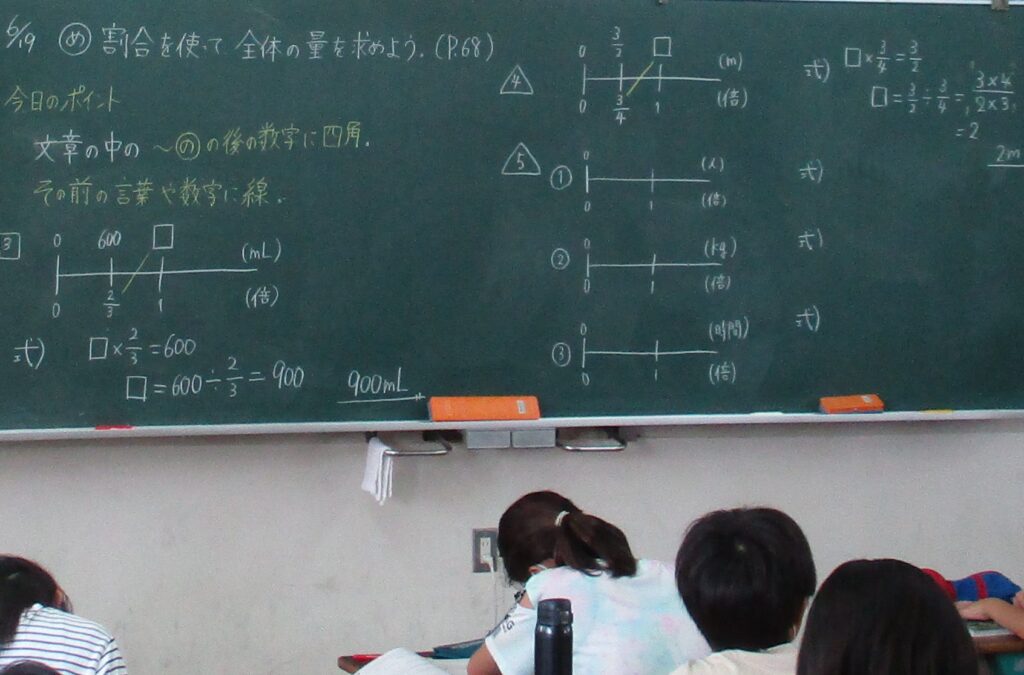 6/19 め 割合を使って 全体の量を求めよう.(P.68)
今日のポイント
文章の中の ～のの後の数字に四角.
その前の言葉や数字に線.
3
0 600 □ (mL)
0 2/3 1 (倍)
式) □×2/3=600
□=600÷2/3=900 900mL
4
0 3/2 □ (m)
0 3/4 1 (倍)
式) □×3/4=3/2
□=3/2÷3/4=3×4/2×3
=2
2m
5
① 0 (l) 式)
0 1 (倍)
② 0 (kg) 式)
0 1 (倍)
③ 0 (時間) 式)
0 1 (倍)